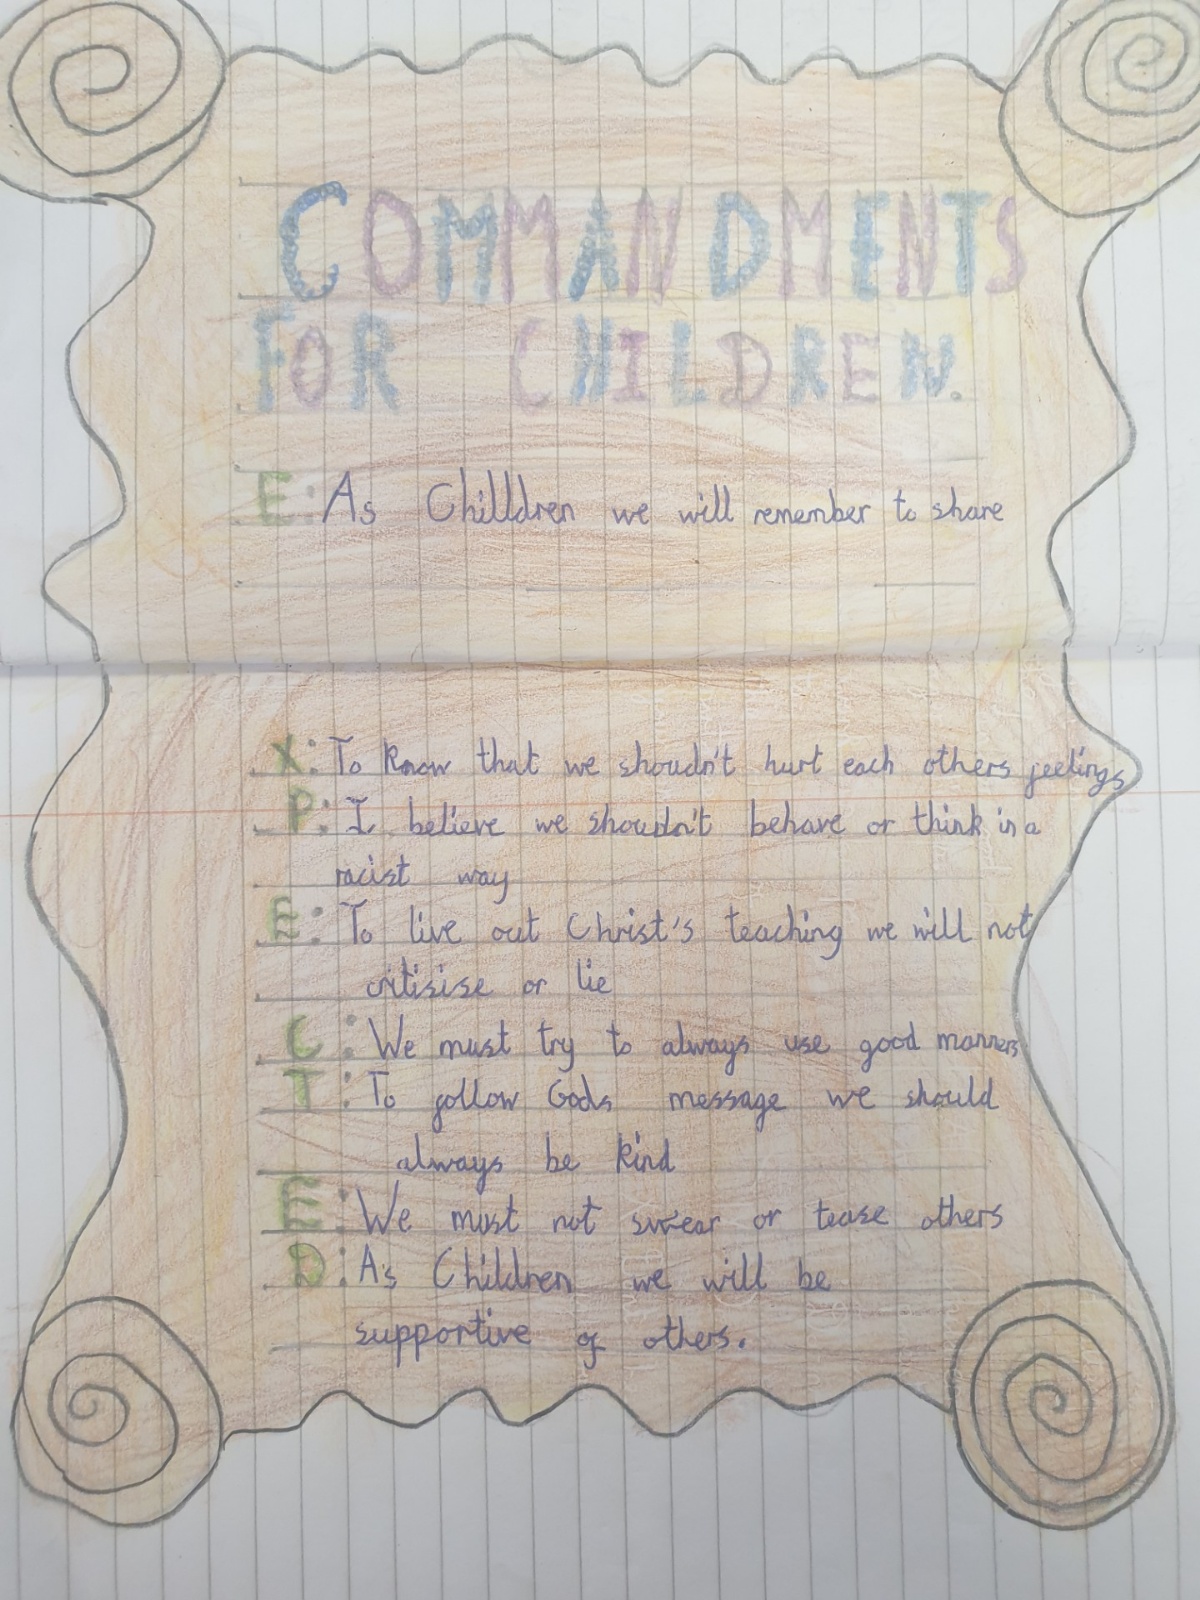 COMMANDMENTS
FOR CHILDREN.
E: As Chilldren we will remember to share
X: To know that we shoudn't hurt each others feelings
P: I believe we shoudn't behave or think in a
racist way
E: To live out Christ's teaching we will not
critisise or lie
C: We must try to always use good manners
T: To follow Gods message we should
always be kind
E: We must not swear or tease others
D: As Children we will be
supportive of others.